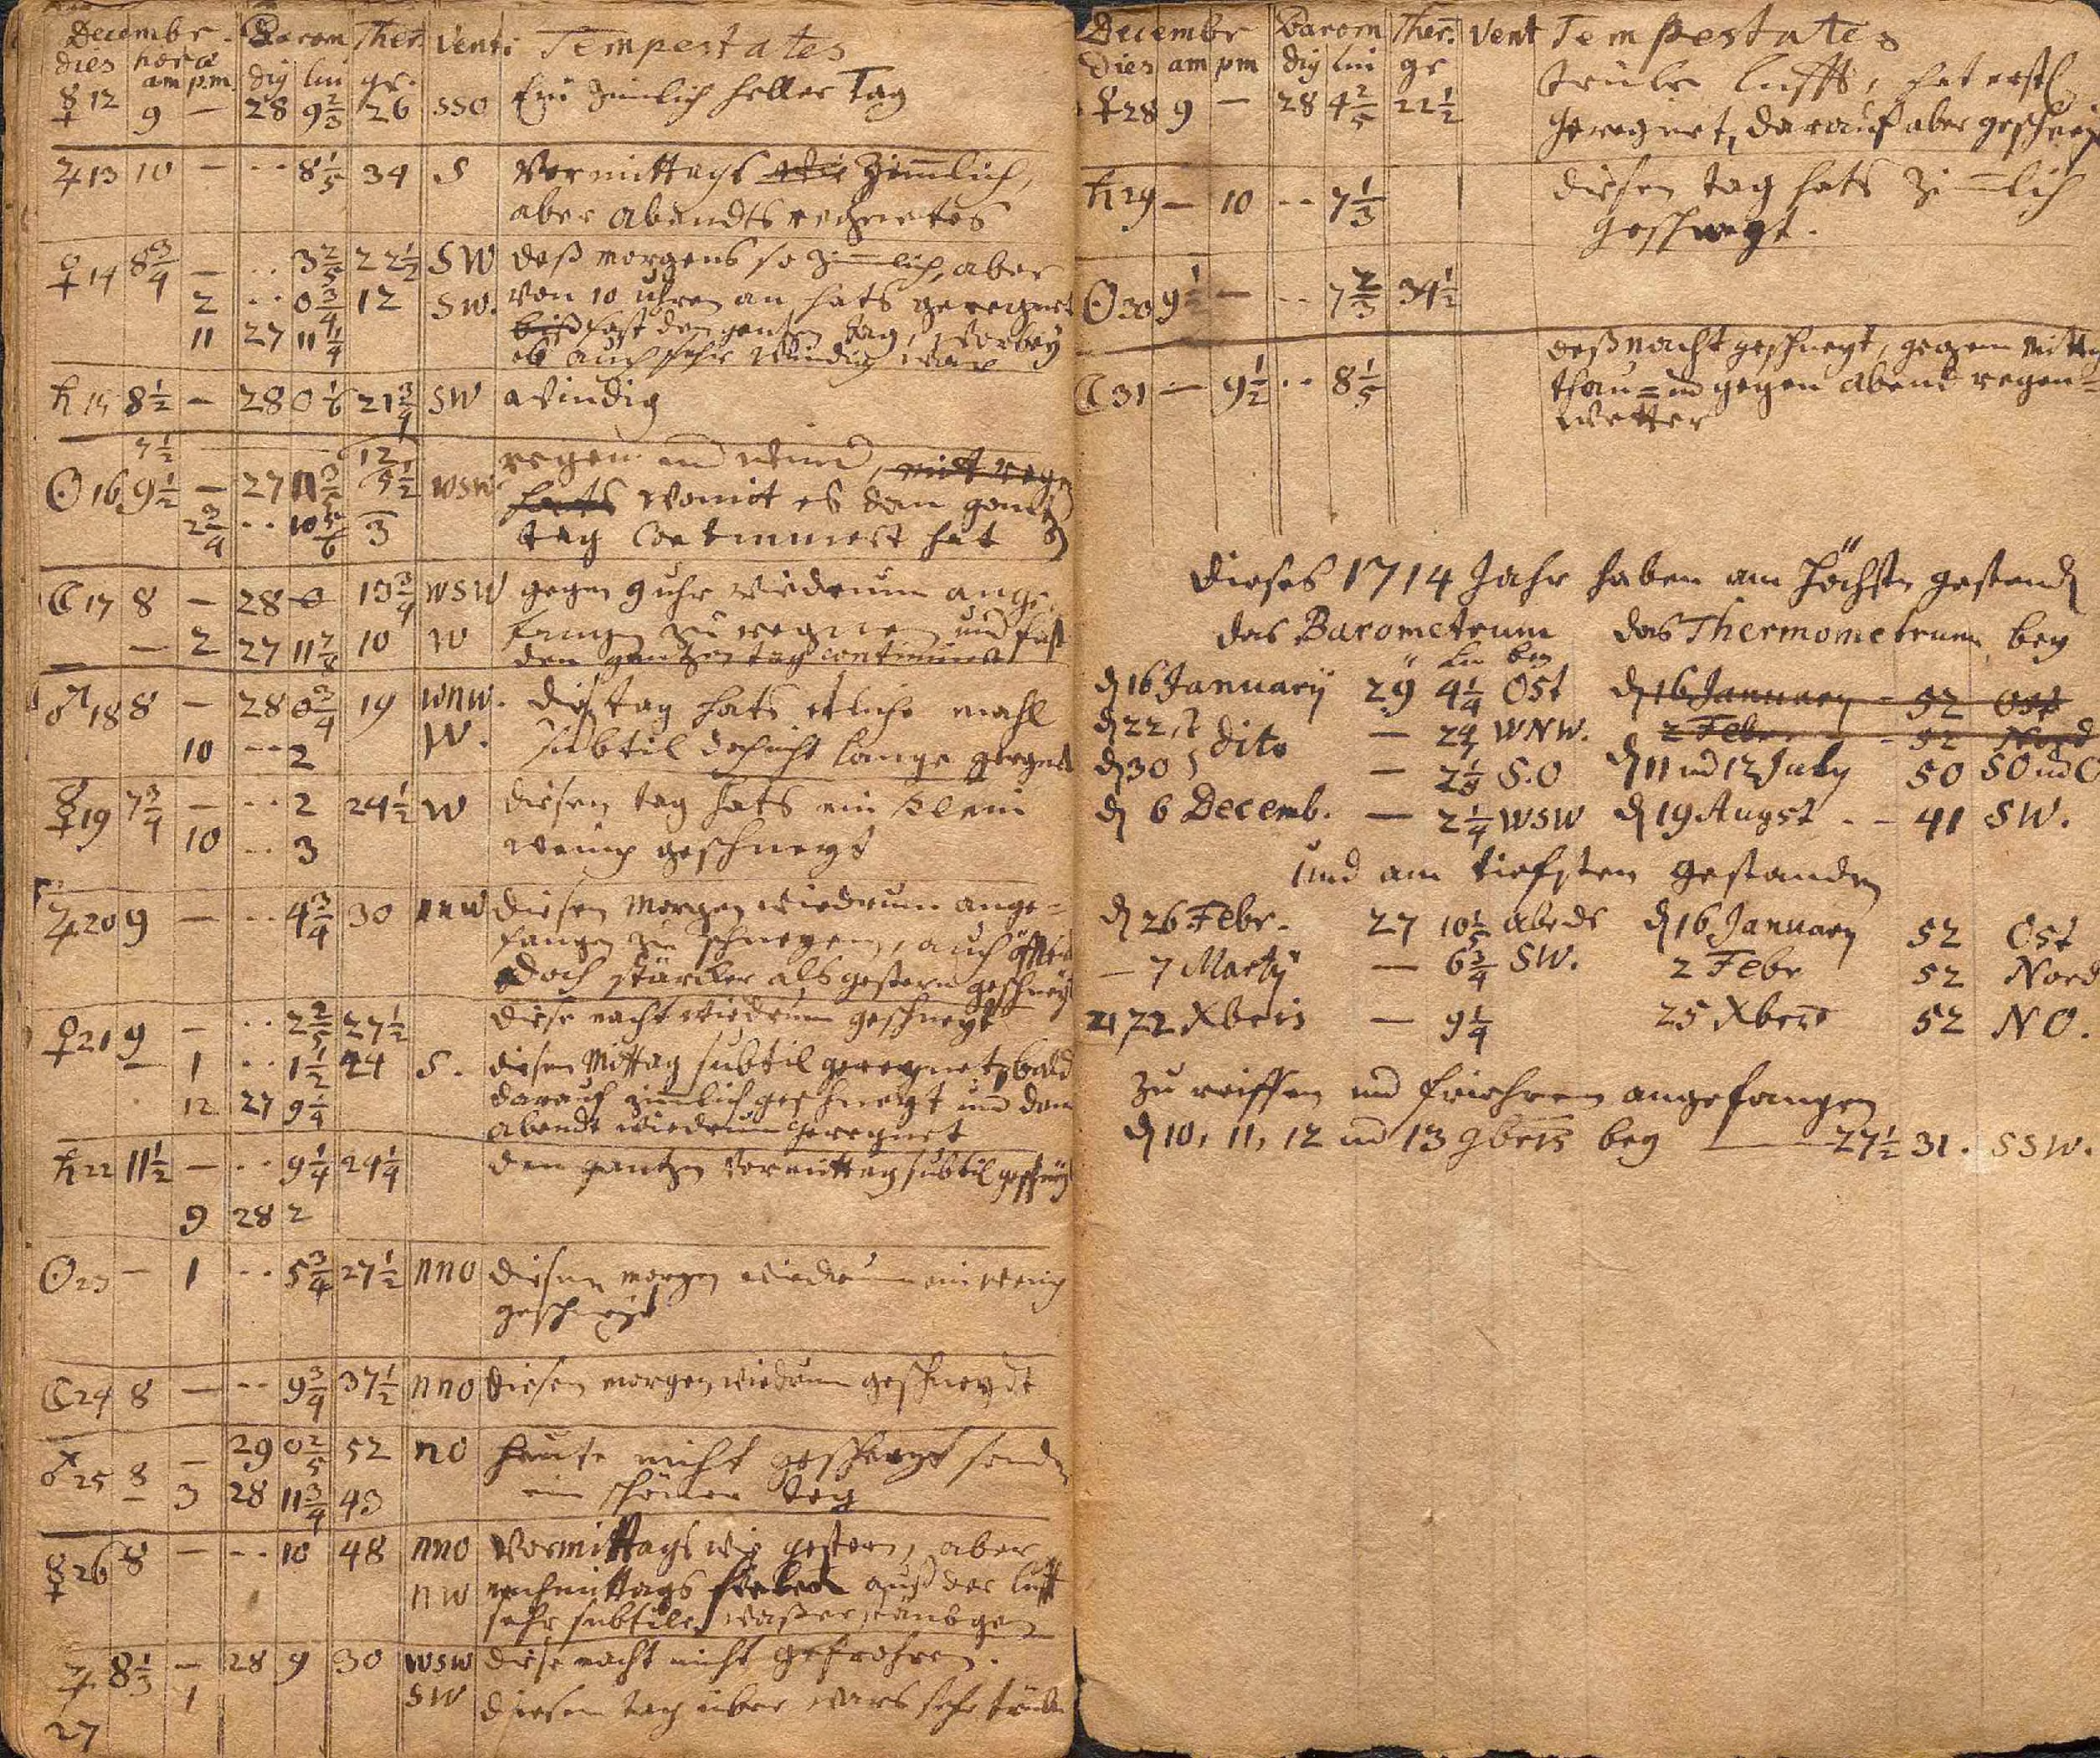 Decembr. Barom Ther. Venti Tempestates
dies hora am pm dig lin gr.
☿ 12 9 — 28 9 2/3 26 SSO Ein zimlich heller Tag
♃ 13 10 — .. 8 1/5 34 S Vormittags zim̅lich,
aber abendts regnetes
♀ 14 8 3/4 — .. 3 2/5 22 1/2 SW deß morgens so zim̅lich, aber
2 .. 0 3/4 12 SW. von 10 uhren an hats geregnet
11 27 11 1/4 fast den gantzen tag, worbey
es auch sehr windig war
♄ 15 8 1/2 — 28 0 1/6 21 3/4 SW windig
7 1/2 12
☉ 16 9 1/2 — 27 11 5 1/2 WSW regen und wind, mitt regen
2 3/4 .. 10 5/6 3 hats womit es den gantzen
tag continuiert hat
☾ 17 8 — 28 0 13 3/4 WSW gegen 9 uhr wiedrum ange-
— 2 27 11 10 W fangen zu regnen und fast
den gantzen tag continuirt
♂ 18 8 — 28 0 3/4 19 WNW. Diß tag hats etliche mahl
10 .. 2 W. subtil doch nicht lange geregnet
☿ 19 7 3/4 — .. 2 24 1/2 W diesen tag hats ein klein
10 .. 3 wenig geschneyt
♃ 20 9 — .. 4 3/4 30 nnw diesen Morgen wiedrum ange-
fangen zu schneyen, auch öffter
doch stärcker als gestern geschneyt
♀ 21 9 — .. 2 2/5 27 1/2 diese nacht wiedrum geschneyt
— 1 .. 1 1/2 24 S. diesen Mittag subtil geregnet, bald
12 27 9 1/4 darauf zimlich geschneyt und den
abendt wiedrum geregnet
♄ 22 11 1/2 — .. 9 1/4 24 1/4 den gantzen Vormittag subtil geschneyt
9 28 2
☉ 23 — 1 .. 5 3/4 27 1/2 nno diesen morgen wiedrum ein wenig
geschneyt
☾ 24 8 — .. 9 3/4 37 1/2 nno diesen morgen wiedrum geschneydt
♂ 25 8 — 29 0 2/5 52 no heute nicht geschneyt sondern
— 3 28 11 3/4 43 ein schöner tag
☿ 26 8 — .. 10 48 nno Vormittags wie gestern, aber
nw nachmittags auß der lufft
sehr subtile
♃ 8 1/3 — 28 9 30 WSW diese nacht nicht gefrohren.
27 1 SW diesen tag über wars sehr trüb
Decembr Barom Ther. Vent Tempestates
Dies am pm dig lin gr
♀ 28 9 — 28 4 2/5 22 1/2 trübe lufft, hat erstl.
geregnet, darauf aber geschneyt
♄ 29 — 10 .. 7 1/3 diesen tag hats zim̅lich
geschneyt.
☉ 30 9 1/2 — .. 7 2/3 34 1/2
☾ 31 — 9 1/2 .. 8 1/5 deß nacht geschneyt, gegen mittag
thau= und gegen abend regen=
wetter
Dieses 1714 Jahr haben am höchsten gestanden
das Barometrum das Thermometrum bey
" Lin bey
dn 16 January 29 4 1/4 Ost dn 16 January — 52 Ost
dn 22, dito — 2 WNW. 2 Febr. — 52 Nord
dn 30 — 2 S.O dn 11 und 12 July 50 SO und O
dn 6 Decemb. — 2 1/4 WSW dn 19 Augst — 41 SW.
und am tiefsten gestanden
dn 26 Febr. 27 10 1/5 abeds dn 16 January 52 Ost
— 7 Martij — 6 3/4 SW. 2 Febr 52 Nord
21, 22 Xbris — 9 1/4 25 Xbris 52 NO.
zu reiffen und friehren angefangen
dn 10, 11, 12 und 13 9bris bey — 27 1/2 31. SSW.